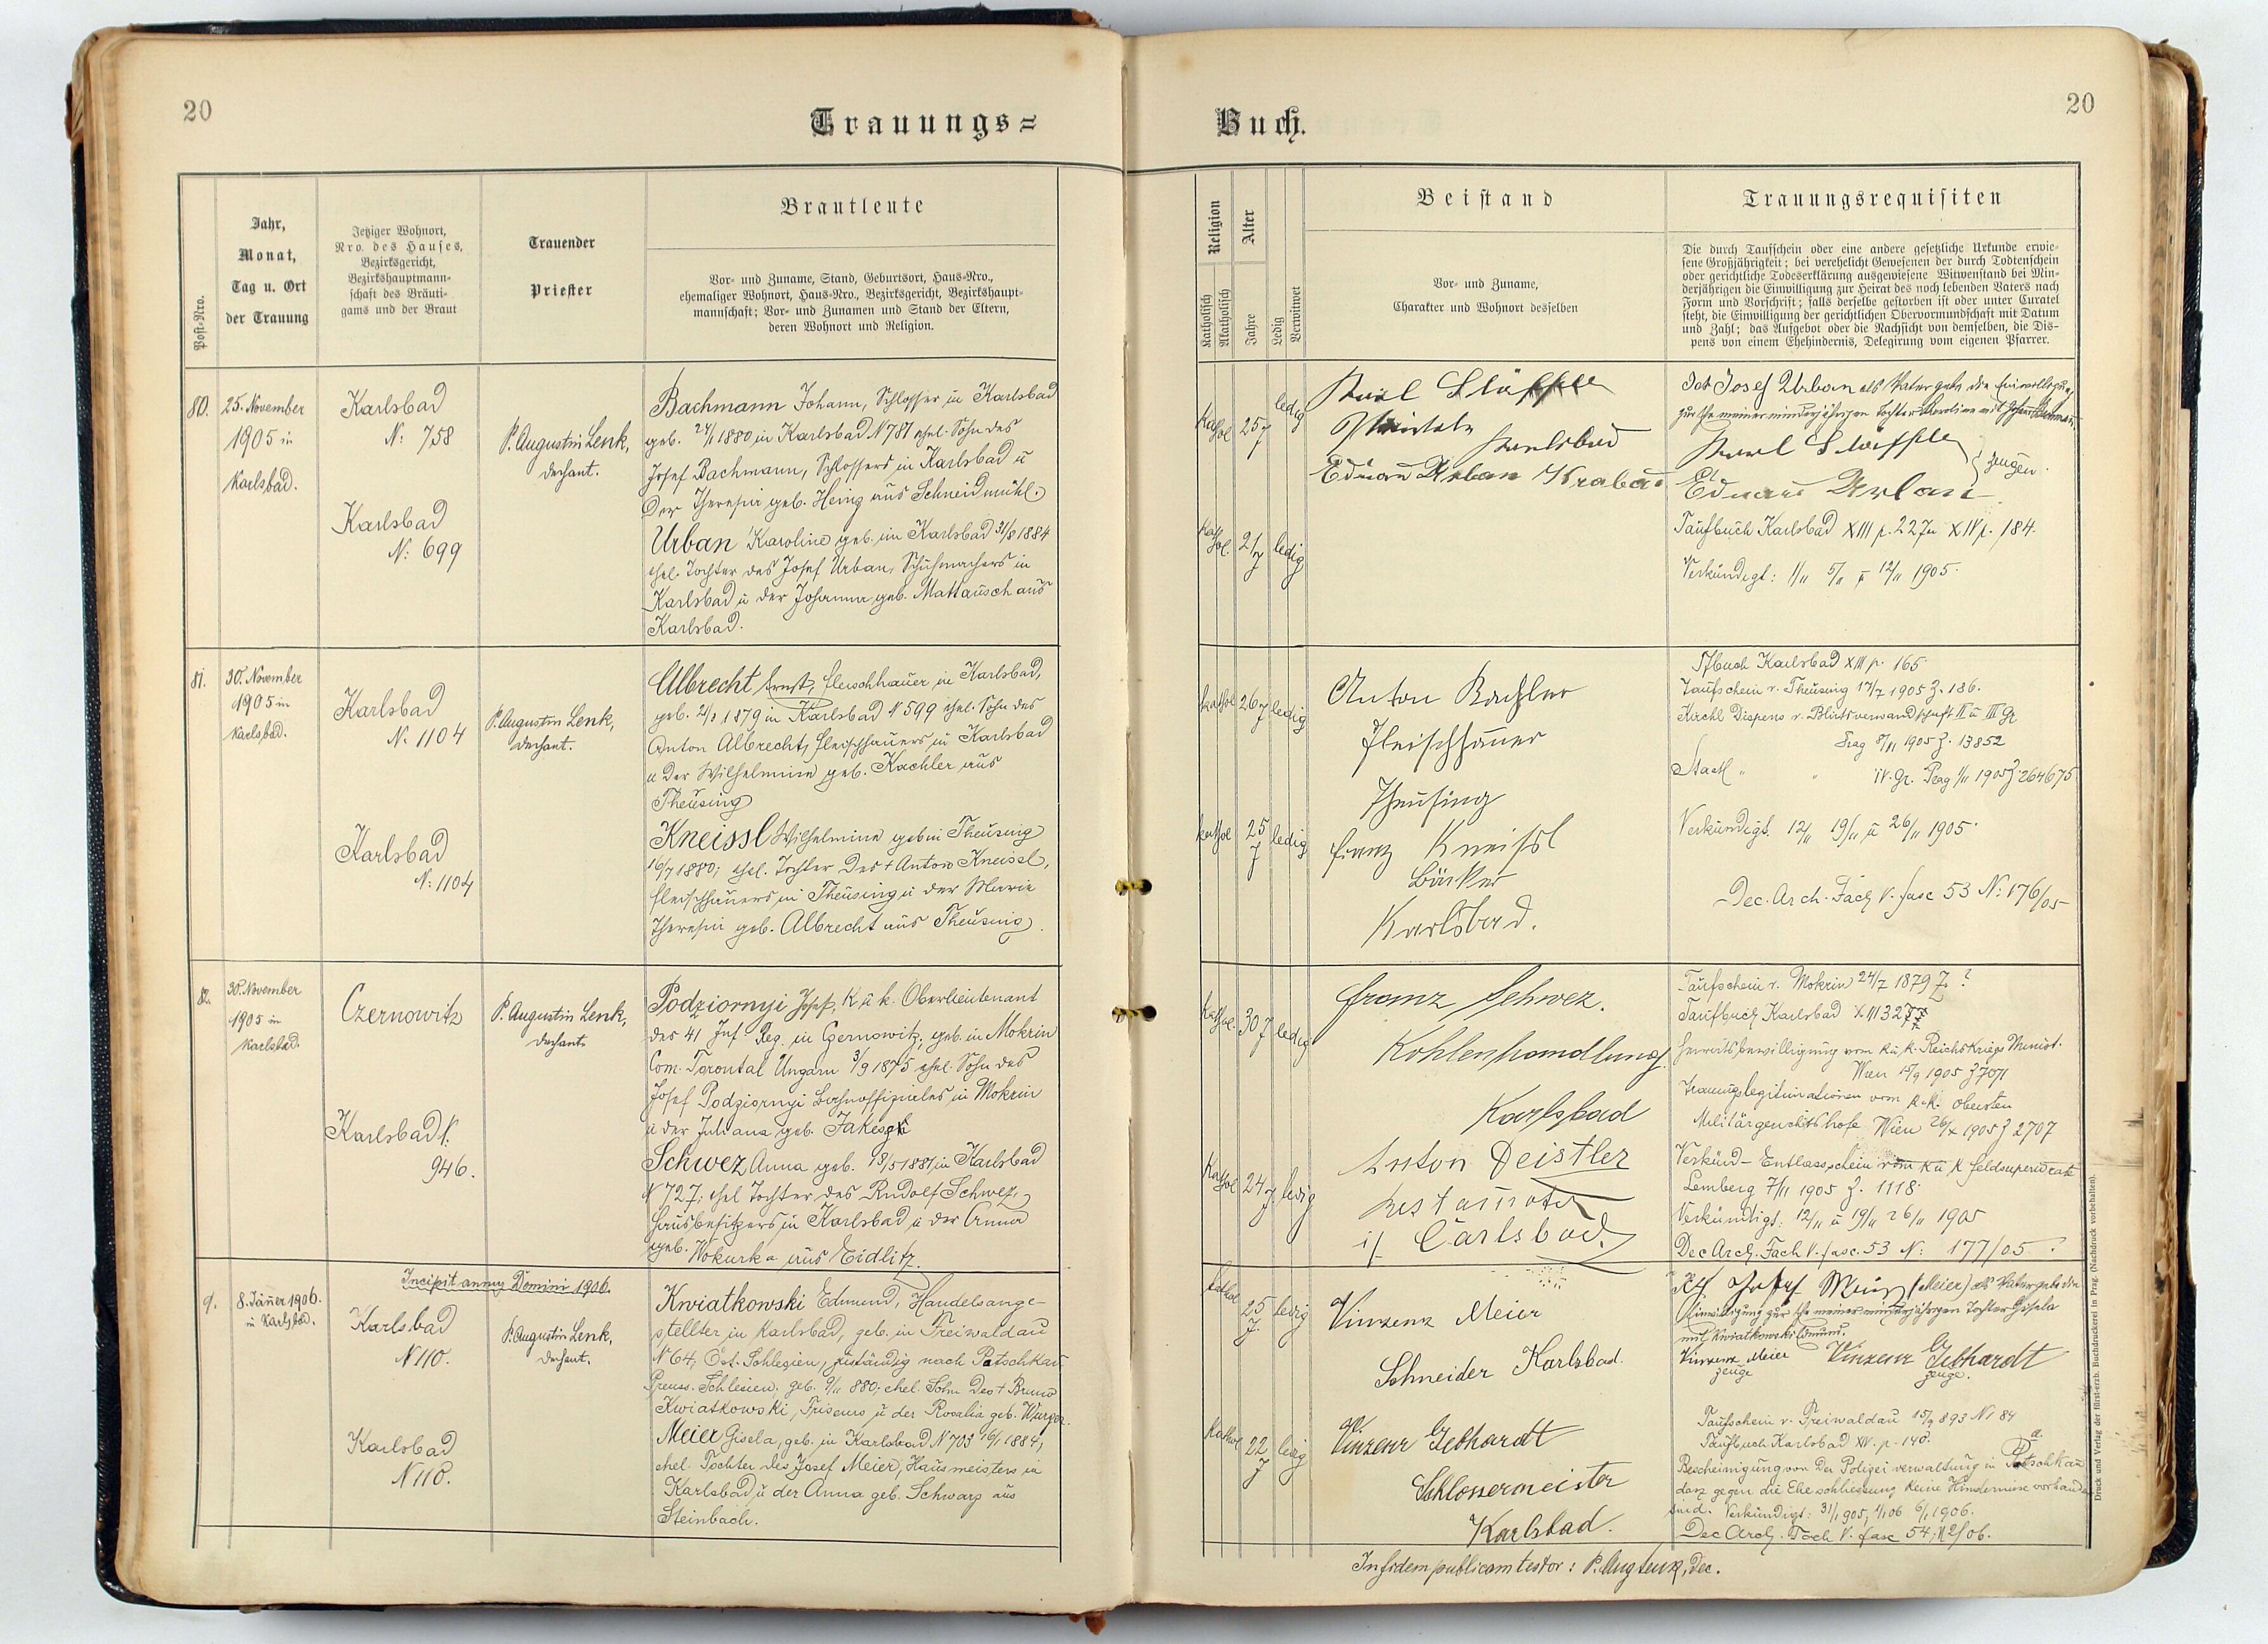 20
Trauungs=
Post-Nro.
Jahr,
Monat,
Tag u. Ort
der Trauung
Jetziger Wohnort,
Nro. des Hauses,
Bezirksgericht,
Bezirkshauptmann-
schaft des Bräuti-
gams und der Braut
Trauender
Priester
Brautleute
Vor- und Zuname, Stand, Geburtsort, Haus-Nro.,
ehemaliger Wohnort, Haus-Nro., Bezirksgericht, Bezirkshaupt-
mannschaft; Vor- und Zunamen und Stand der Eltern,
deren Wohnort und Religion.
80.
25. November
1905 in
Karlsbad.
Karlsbad
N: 758
Karlsbad
N: 699
P. Augustin Lenk,
Dechant.
Bachmann Johann, Schlosser in Karlsbad
geb. 1880 in Karlsbad N 781 ehel. Sohn des
Josef Bachmann, Schlossers in Karlsbad u
der Theresia geb. Heinz aus Schneidmühl.
Urban Karoline geb. in Karlsbad 31/8 1884
ehel. Tochter des Josef Urban, Schuhmachers in
Karlsbad u der Johanna geb. Mattausch aus
Karlsbad.
81.
30. November
1905 in
Karlsbad.
Karlsbad
N: 1104
Karlsbad
N: 1104
P. Augustin Lenk,
Dechant.
Albrecht Ernst, Fleischhauer in Karlsbad,
geb. 1879 in Karlsbad N 599 ehel. Sohn des
Anton Albrecht, Fleischhauers in Karlsbad
u der Wilhelmine geb. Kachler aus
Theusing
Kneissl Wilhelmine geb in Theusing
16/7 1880; ehel. Tochter des + Anton Kneissl,
Fleischhauers in Theusing u der Marie
Theresia geb. Albrecht aus Theusing.
82.
30. November
1905 in
Karlsbad.
Czernowitz
Karlsbad N.
946.
P. Augustin Lenk,
Dechant.
Podziornyi Josef, K u k. Oberlieutenant
des 41 Inf. Reg. in Czernowitz, geb. in Mokrin
Com. Torontal Ungarn 3/9 1875 ehel. Sohn des
Josef Podziornyi Bahnoffiziales in Mokrin
u der Juliana geb.
Schwez Anna geb. 18/5 1881 in Karlsbad
N 727; ehel Tochter des Rudolf Schwez,
Hausbesitzers in Karlsbad u der Anna
geb. Wokurka aus Eidlitz.
Incipit annus Domini 1906.
8. Jäner 1906.
in Karlsbad.
Karlsbad
N 110.
Karlsbad
N 110.
P. Augustin Lenk,
Dechant.
Kwiatkowski Edmund, Handelsange-
stellter in Karlsbad, geb. in Freiwaldau
N 64, Öst. Schlesien, zuständig nach Patschkau
Preuss. Schlesien; geb. 9/11 880; ehel. Sohn des + Bruno
Kwiatkowski, Friseurs u der Rosalia geb.
Meier Gisela, geb. in Karlsbad N 703 16/1 1884,
ehel. Tochter des Josef Meier, Hausmeisters in
Karlsbad u der Anna geb. Schwarz aus
Steinbach.
Buch.
20
Religion
Katholisch
Akatholisch
Alter
Jahre
Ledig
Verwitwet
Beistand
Vor- und Zuname,
Charakter und Wohnort desselben
Trauungsrequisiten
Die durch Taufschein oder eine andere gesetzliche Urkunde erwie-
sene Großjährigkeit; bei verehelicht Gewesenen der durch Todtenschein
oder gerichtliche Todeserklärung ausgewiesene Witwenstand bei Min-
derjährigen die Einwilligung zur Heirat des noch lebenden Vaters nach
Form und Vorschrift; falls derselbe gestorben ist oder unter Curatel
steht, die Einwilligung der gerichtlichen Obervormundschaft mit Datum
und Zahl; das Aufgebot oder die Nachsicht von demselben, die Dis-
pens von einem Ehehindernis, Delegirung vom eigenen Pfarrer.
Kathol
25 J
ledig
Karl
Karlsbad
Eduard Urban
Kathol.
21 J
ledig
Ich Josef Urban als Vater gebe die Einwilligung
zur Ehe meiner minderjährigen Tochter Karoline mit Johann Bachmann.
Karl
Eduard Urban
Zeugen.
Taufbuch Karlsbad XIII p. 227 u XIV p. 184.
Verkündigt: 1/11 5/11 u 12/11 1905.
kathol
26 J
ledig
Anton Kachler
Fleischhauer
Theusing
kathol
25 J
ledig
Franz Kneissl
Bäcker
Karlsbad.
Tfbuch Karlsbad XIII p. 165
Taufschein v. Theusing 17/7 1905 Z. 186.
Kirchl Dispens v. Blutsverwandschaft II u III Gr
Prag 8/11 1905 Z. 13852
Staatl " " IV. Gr. Prag 1/11 1905 Z 264675
Verkündigt. 12/11 19/11 u 26/11 1905.
Dec. Arch. Fach V. fasc 53 N: 176/05
Kathol.
30 J
ledig
Franz Schwez.
Kohlenhandlung
Karlsbad
Kathol
24 J
ledig
Anton Deistler
i/ Carlsbad.
Taufschein v. Mokrin 24/7 1879 Z. ?
Taufbuch Karlsbad
Heiratsbewilligung vom k u k. Reichs Kriegs Minist.
Wien 15/9 1905 Z 7071
Trauungslegitimationen vom k. k. obersten
Militärgerichtshofe Wien 26/x 1905 Z 2707
Verkünd- Entlassschein vom k u k Feldsuperiorate
Lemberg 7/11 1905 Z. 1118.
Verkündigt: 12/11 u 19/11 26/11 1905
Dec Arch. Fach V. fasc. 53 N: 177/05.
kathol
25 J.
ledig
Vinzenz Meier
Schneider Karlsbad.
Kathol
22 J
ledig
Vinzenz Gebhardt
Schlossermeister
Karlsbad.
Ich Josef (Meier) als Vater gebe die
Einwilligung zur Ehe meiner minderjährigen Tochter Gisela
mit Kwiatkowski Edmund.
Vinzenz Meier
Zeuge
Vinzenz Gebhardt
Zeuge.
Taufschein v. Freiwaldau 15/9 893 N 184
Taufbuch Karlsbad XIV. p. 140.
Bescheinigung von der Polizei verwaltung in Patschkau
dass gegen die Eheschliessung keine Hindernisse vorhanden
sind. Verkündigt: 6/1 1906.
Dec Arch. Fach V. fasc 54; N 2/06.
In fidem publicam testor: P. Aug Lenk, Dec.
Druck und Verlag der fürst-erzb. Buchdruckerei in Prag. (Nachdruck vorbehalten).